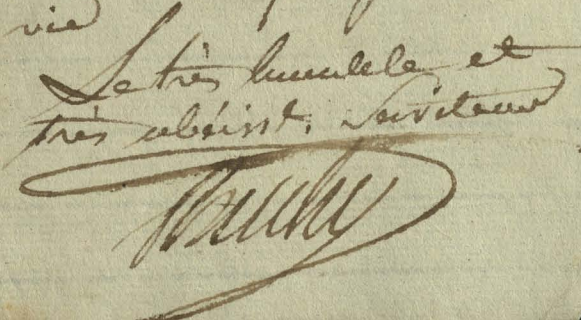 vie
Le très humble et
très obéisst. Serviteur